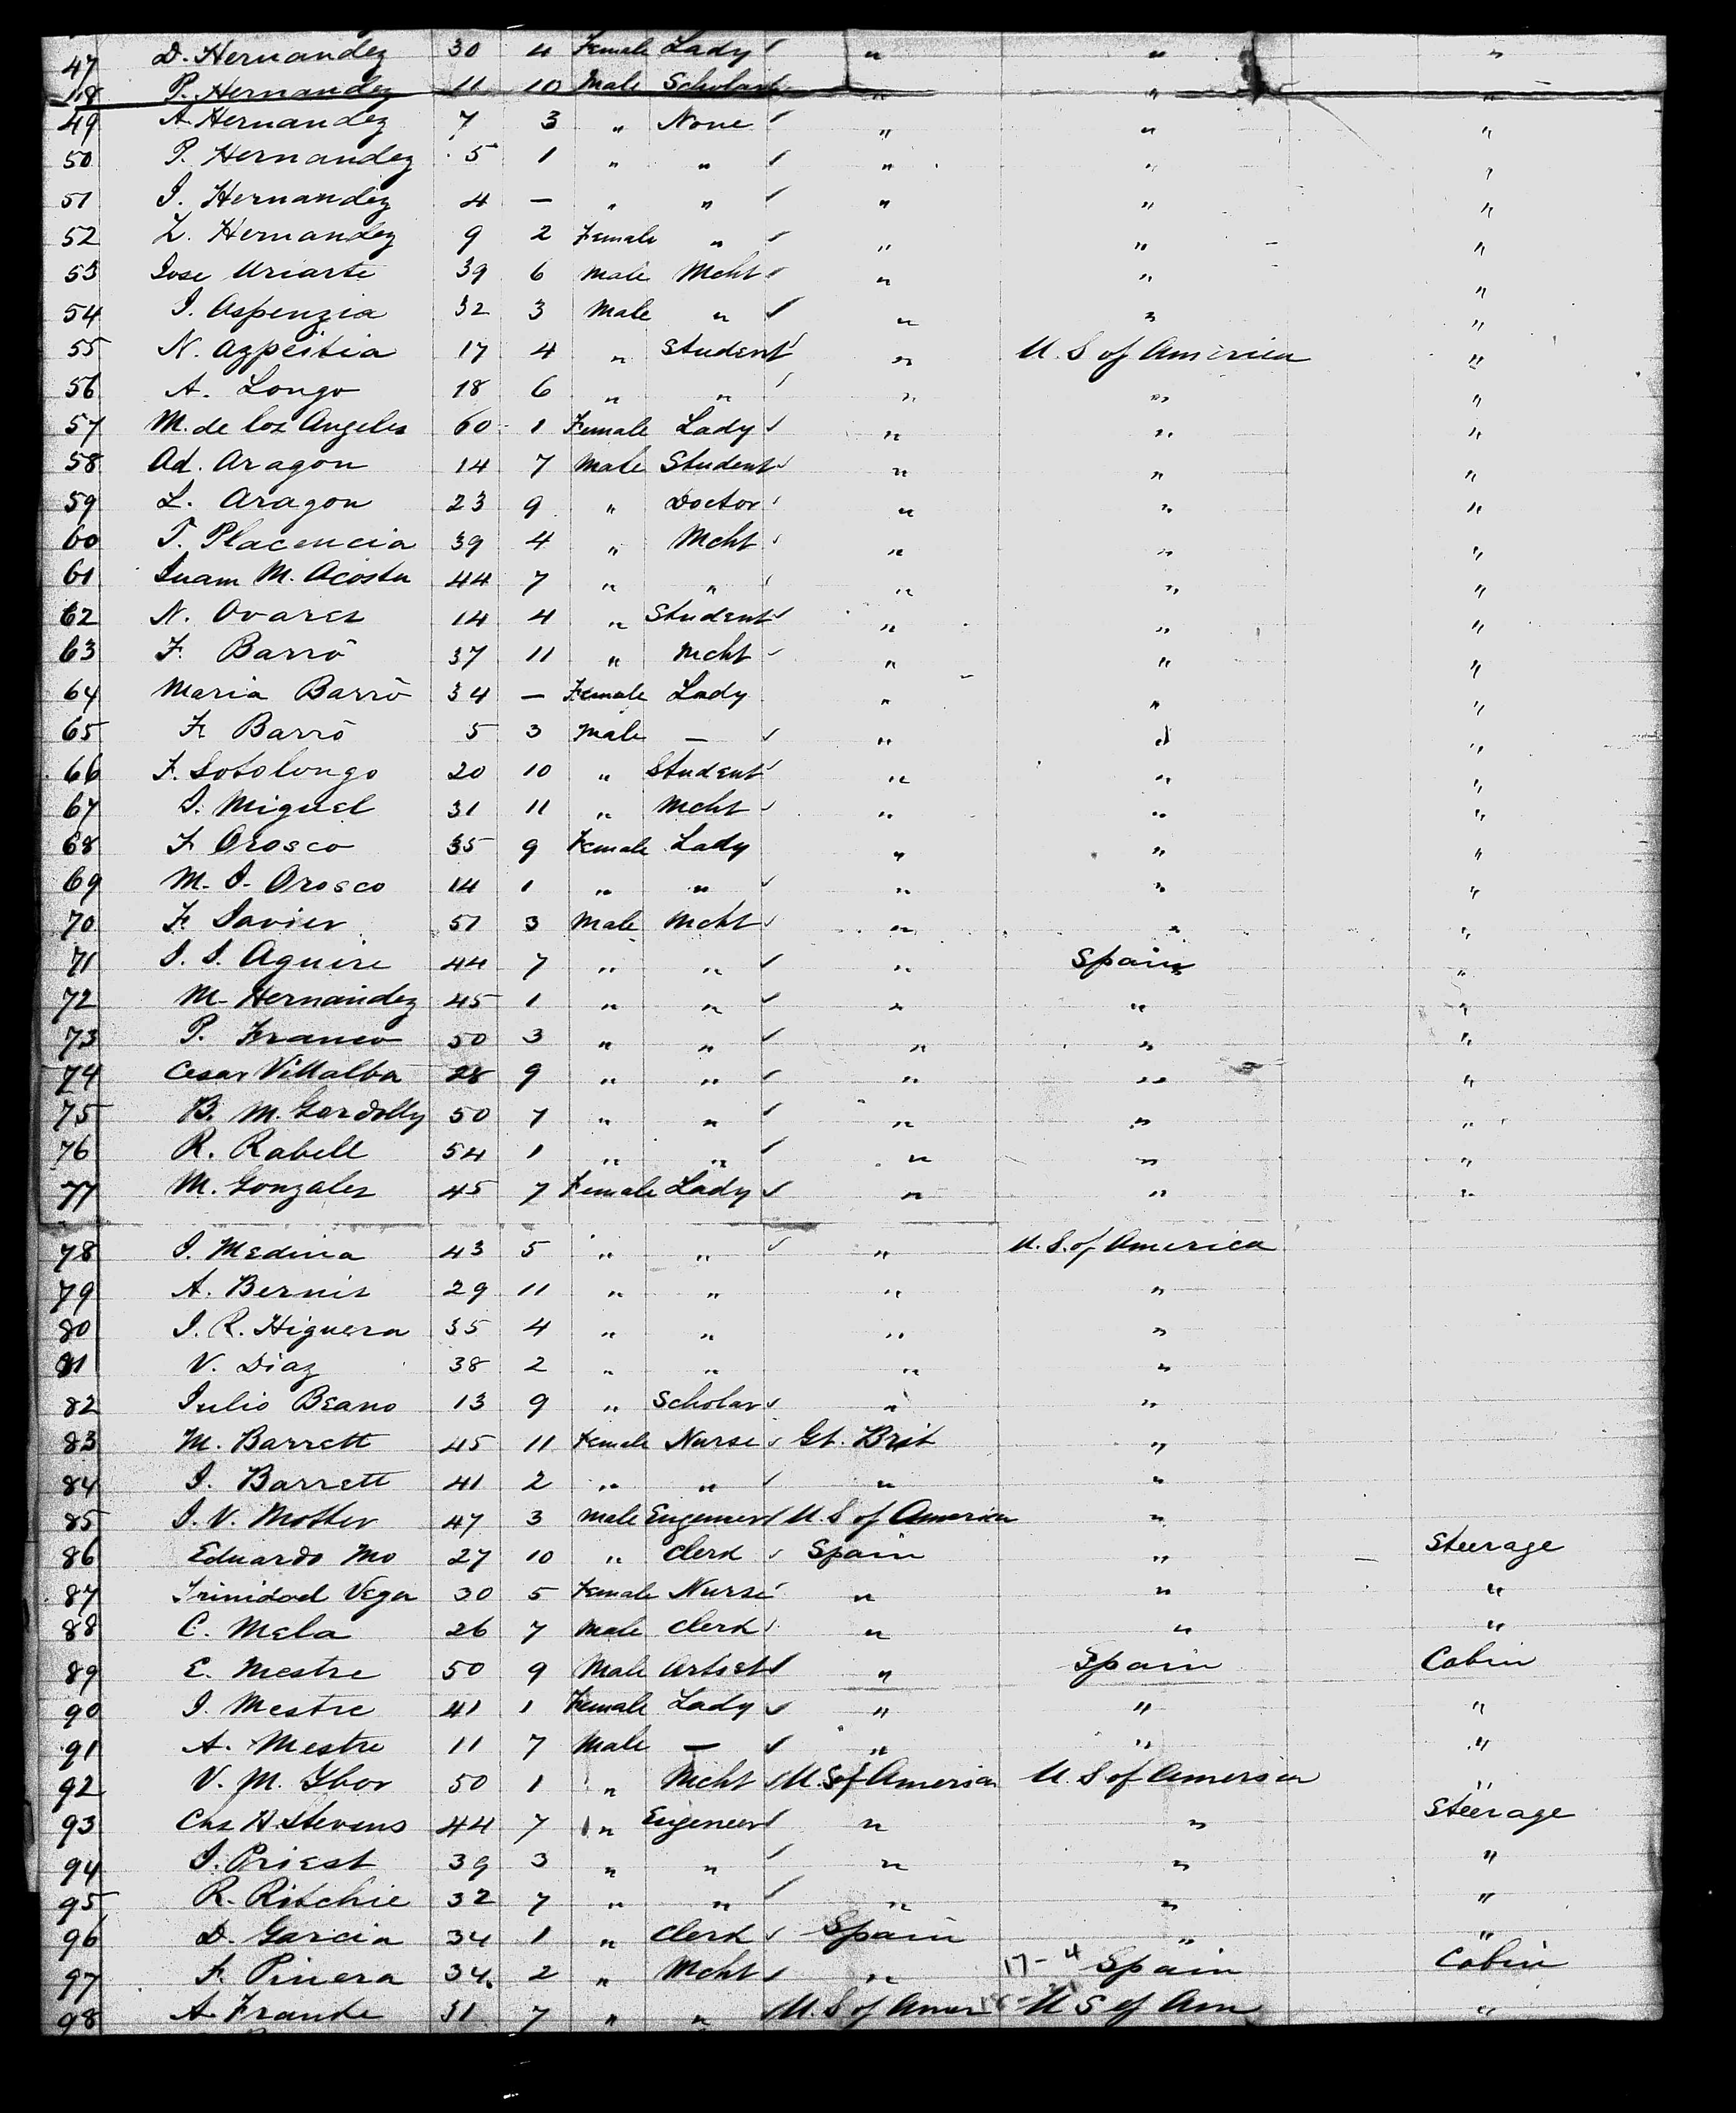 47 D. Hernandez 30 4 Female Lady ✓ " " "
48 P. Hernandez 11 10 Male Scholar " " "
49 A. Hernandez 7 3 " None ✓ " " "
50 P. Hernandez 5 1 " " ✓ " " "
51 I. Hernandez 4 — " " ✓ " " "
52 L. Hernandez 9 2 Female " ✓ " " "
53 Jose Uriarte 39 6 Male Mcht ✓ " " "
54 I. Aspenzia 32 3 Male " ✓ " " "
55 N. Azpeitia 17 4 " Student ✓ " U. S of America "
56 A. Longo 18 6 " " ✓ " " "
57 M. de los Angeles 60 1 Female Lady ✓ " " "
58 Ad. Aragon 14 7 Male Student ✓ " " "
59 L. Aragon 23 9 " Doctor ✓ " " "
60 T. Placencia 39 4 " Mcht ✓ " " "
61 Juam M. Acosta 44 7 " " ✓ " " "
62 N. Ovares 14 4 " Student ✓ " " "
63 F. Barró 37 11 " Mcht ✓ " " "
64 Maria Barró 34 — Female Lady " " "
65 F. Barró 5 3 Male — ✓ " " "
66 F. Sotolongo 20 10 " Student ✓ " " "
67 I. Miguel 31 11 " Mcht ✓ " " "
68 F. Orosco 35 9 Female Lady " " "
69 M. I. Orosco 14 1 " " ✓ " " "
70 F. Javier 51 3 Male Mcht ✓ " " "
71 I. I. Aguire 44 7 " " ✓ " Spain "
72 M. Hernandez 45 1 " " ✓ " " "
73 P. Franco 50 3 " " ✓ " " "
74 Cesar Villalba 28 9 " " ✓ " " "
75 B. M. 50 7 " " ✓ " " "
76 R. Rabell 54 1 " " ✓ " " "
77 M. Gonzales 45 7 Female Lady ✓ " " "
78 I. Medina 43 5 " " ✓ " U. S. of America
79 A. Bernis 29 11 " " " "
80 I. R. Higuera 35 4 " " " "
81 V. Diaz 38 2 " " " "
82 Julio Beano 13 9 " Scholar ✓ " "
83 M. Barrett 45 11 Female Nurse ✓ Gt. Brit "
84 I. Barrett 41 2 " " ✓ " "
85 I. V. Motter 47 3 Male Engeneer ✓ U S of America "
86 Eduardo Mo 27 10 " Clerk ✓ Spain " Steerage
87 Trinidad Vega 30 5 Female Nurse ✓ " " "
88 C. Mela 26 7 Male Clerk ✓ " " "
89 E. Mestre 50 9 Male Artset ✓ " Spain Cabin
90 I. Mestre 41 1 Female Lady ✓ " " "
91 A. Mestre 11 7 Male — ✓ " " "
92 V. M. Ybor 50 1 " Mcht ✓ U. S of America U. S of America "
93 Chs H. Stevens 44 7 " Engeneer ✓ " " Steerage
94 I. Priest 39 3 " " ✓ " " "
95 R. Ritchie 32 7 " " ✓ " " "
96 D. Garcia 34 1 " Clerk ✓ Spain " "
97 F. Pinera 34 2 " Mcht ✓ " 17-4 Spain Cabin
98 A. Frande 31 7 " " U. S of Amer U S of Am "